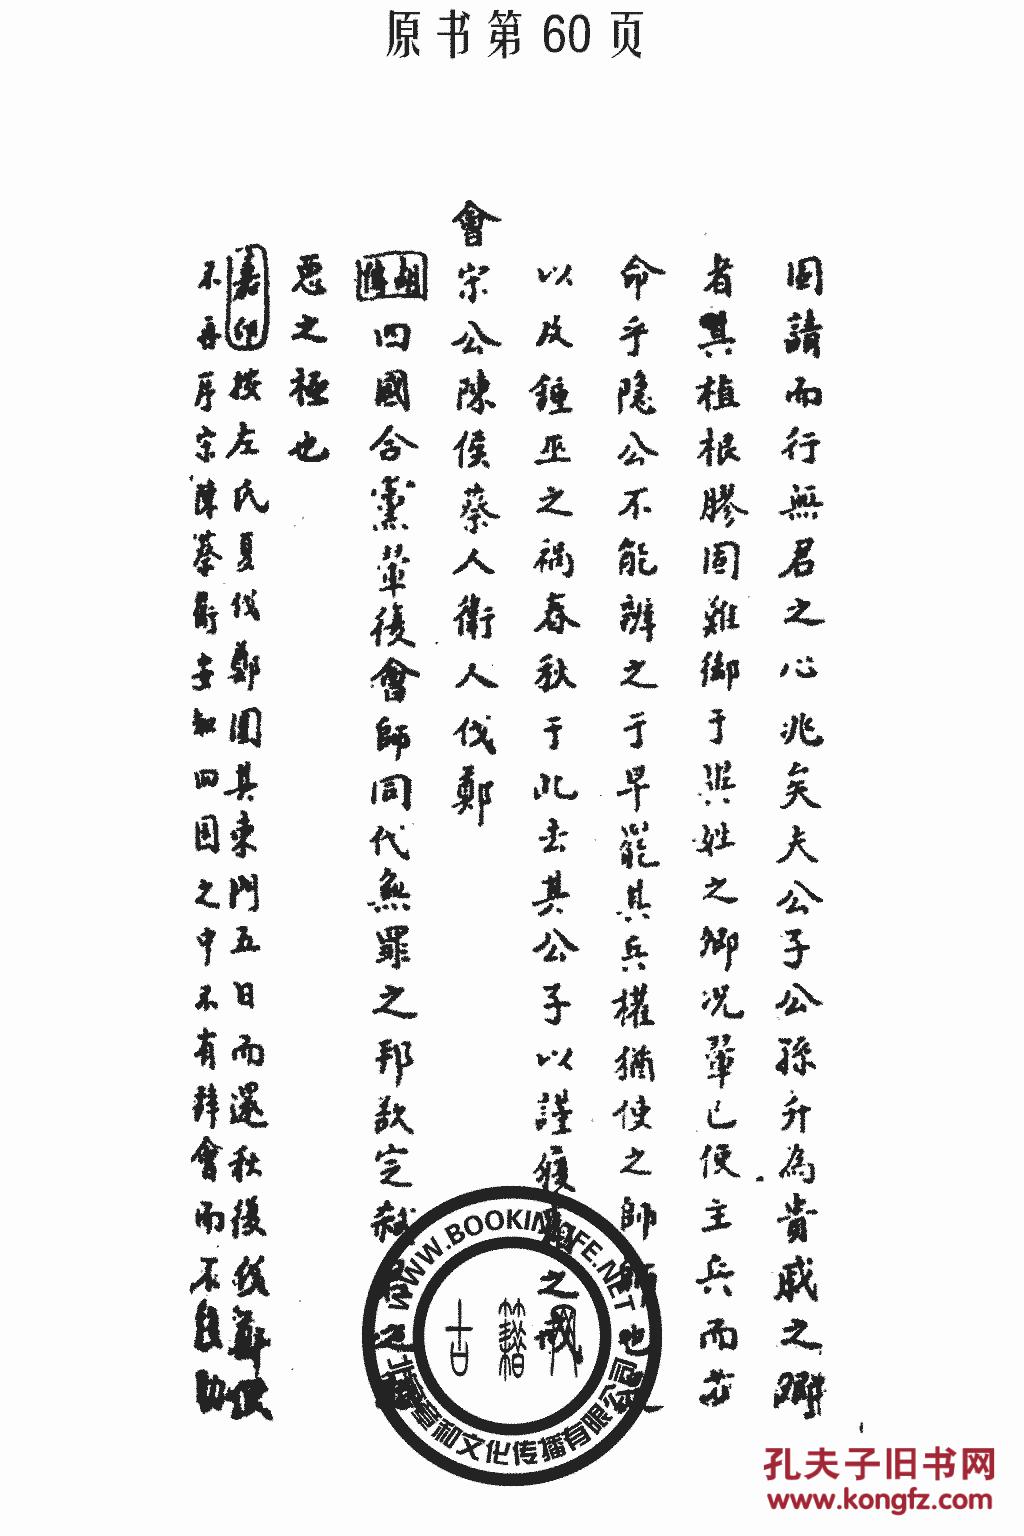 原书第60页
固請而行無君之心兆矣夫公子公孫升為貴戚之卿
者其植根膠固難御于異姓之卿況翬已使主兵而
命乎隐公不能辨之于早罷其兵權猶使之師也
以及鍾巫之禍春秋于此去其公子以謹履霜之戒
會宗公陳侯蔡人衛人伐鄭
四國合黨翬後會師同伐無罪之邦欲定弒君之
惡之極也
嘉卬按左氏夏伐鄭圍其東門五日而還秋後伐鄭
不再序宗陳蔡衛
四国之中不有 會而不
WWW.BOOKINLIFE.NET
古籍网
文化传播有限公司
孔夫子旧书网
www.kongfz.com